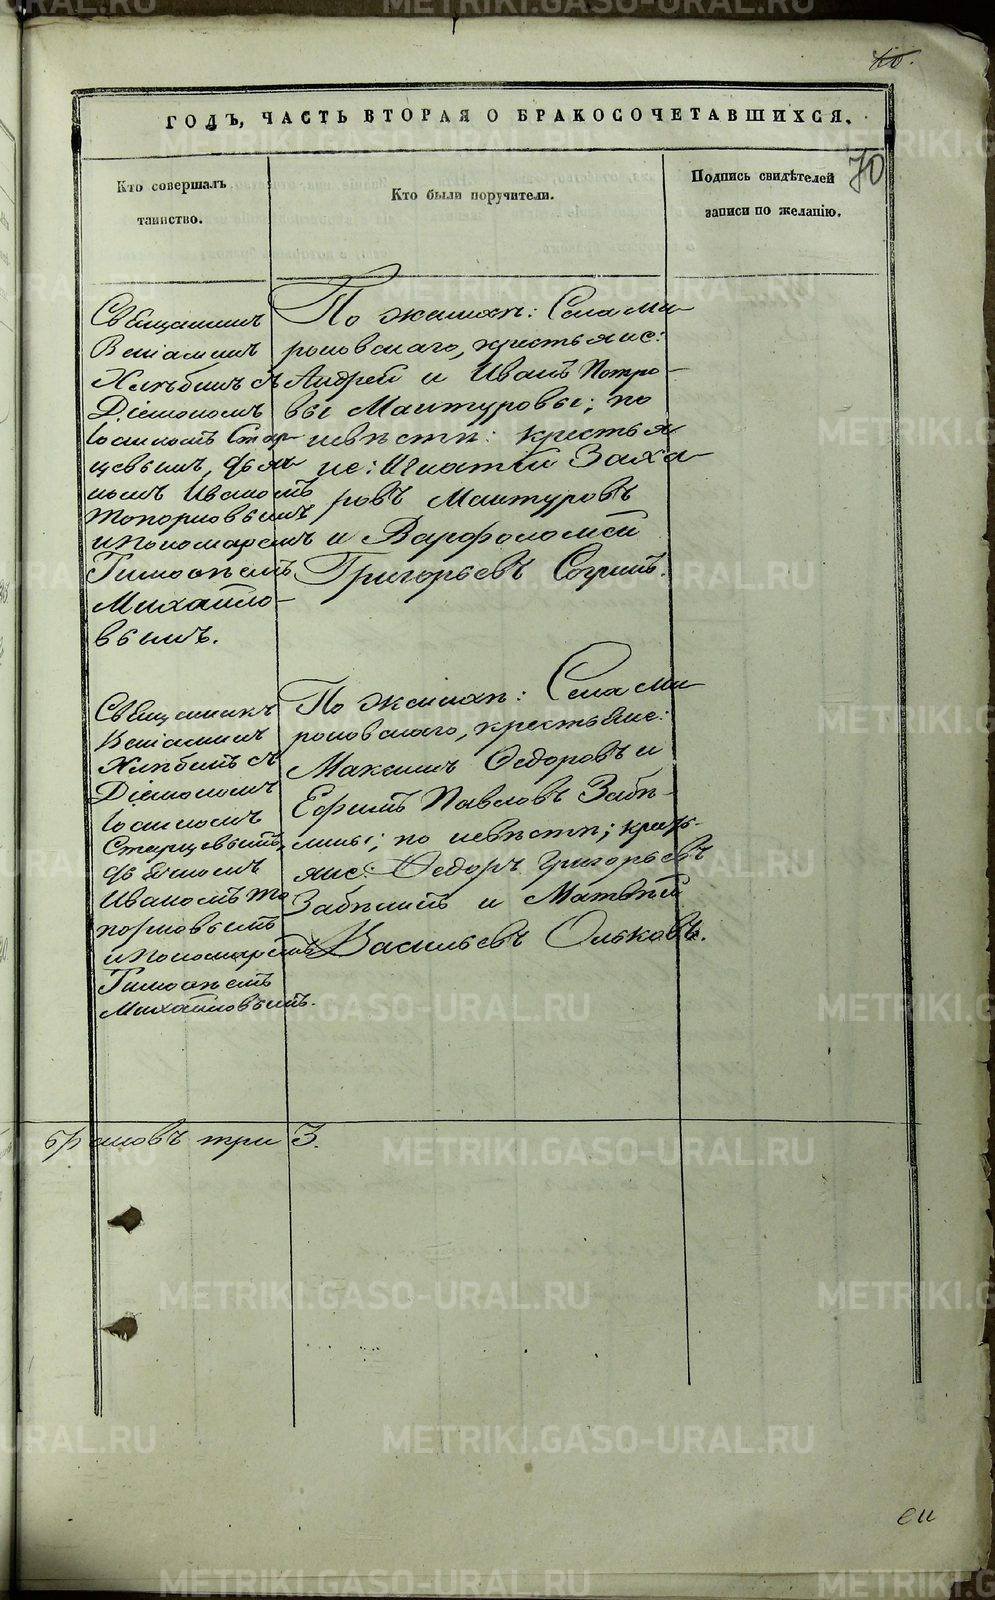 METRIKI.GASO-URAL.RU
70.
ГОДЪ, ЧАСТЬ ВТОРАЯ О БРАКОСОЧЕТАВШИХСЯ.
70
Кто совершалъ
таинство.
Кто были поручители.
Подпись свидѣтелей
записи по желанію.
Священникъ
Веніаминъ
Хлѣбинъ съ
Діакономъ
Іоанномъ Стар-
цевымъ, дья-
комъ Иваномъ
Топорковымъ
и пономаремъ
Тимофѣемъ
Михайло-
вымъ.
По женихѣ: Села Ми-
роновскаго, крестьяне:
Андрей и Иванъ Петро-
вы Мантуровы; по
невѣстѣ: крестья
не: Игнатій Заха-
ровъ Мантуровъ
и Варфоломей
Григорьевъ Согринъ.
Священникъ
Веніаминъ
Хлѣбинъ съ
Діакономъ
Іоанномъ
Старцевымъ,
дьячкомъ
Иваномъ То
порковымъ
и пономаремъ
Тимофѣемъ
Михайловымъ.
По женихѣ: Села Ми-
роновскаго, крестьяне:
Максимъ Ѳедоровъ и
Ефимъ Павловъ Забѣ-
лины; по невѣстѣ; кресть-
яне: Ѳедоръ Григорьевъ
Забѣлинъ и Матвѣй
Васильевъ Ольковъ.
браковъ три 3.